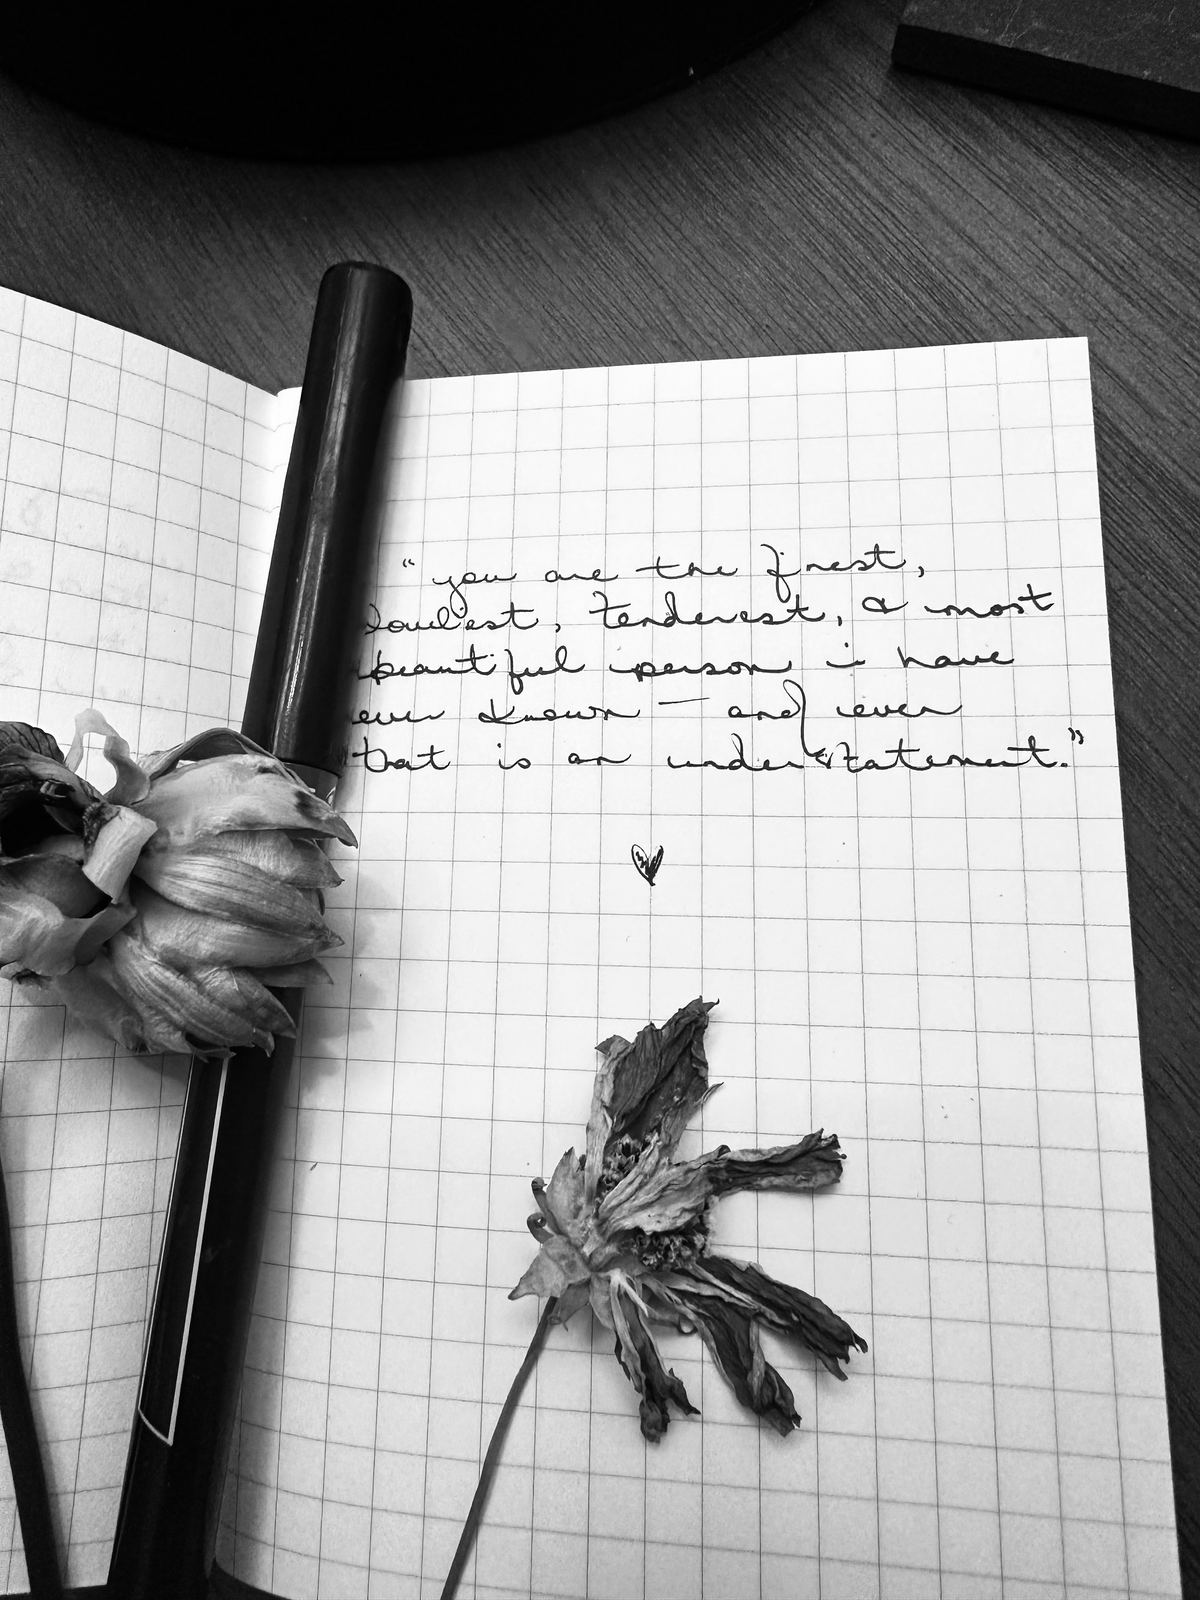 "you are the finest,
loveliest, tenderest, & most
beautiful person i have
ever known — and even
that is an understatement."